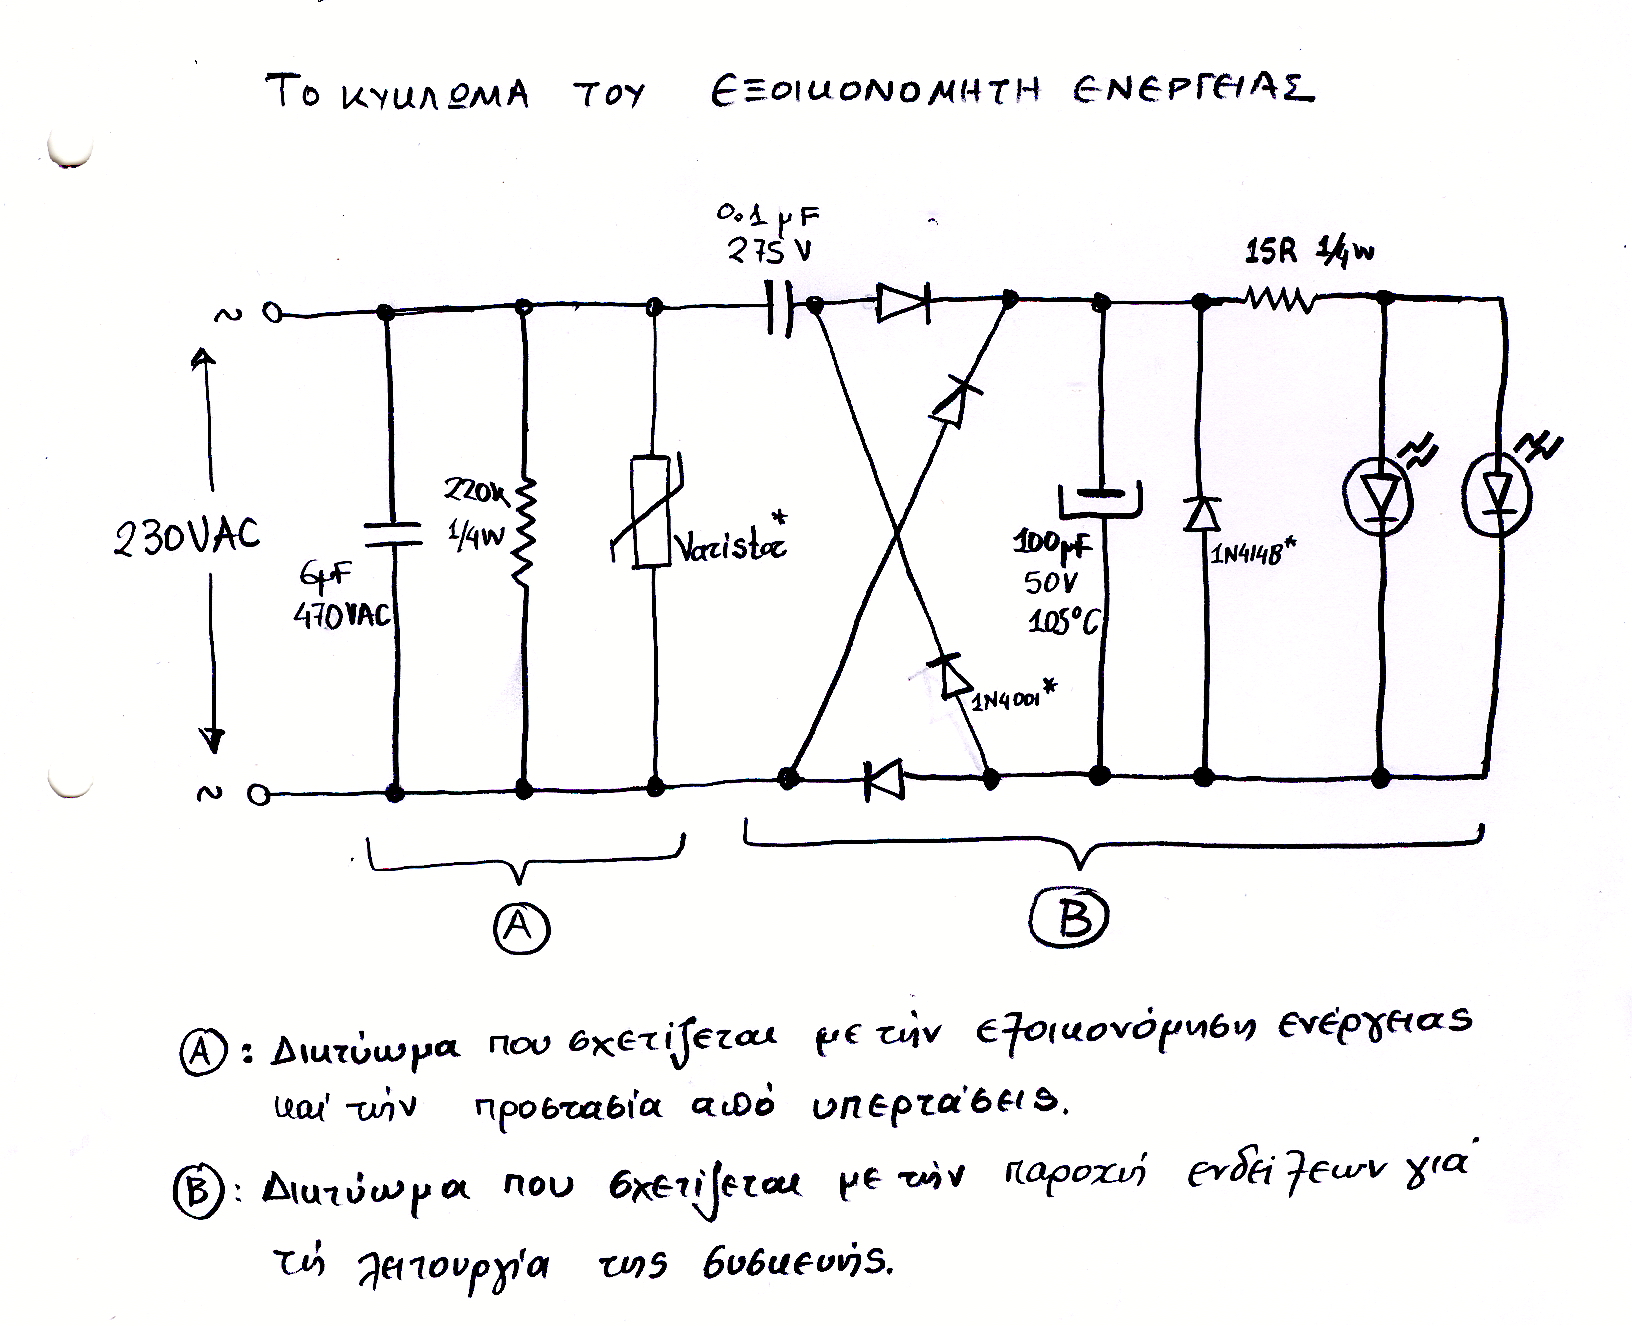 ΤΟ ΚΥΚΛΩΜΑ ΤΟΥ ΕΞΟΙΚΟΝΟΜΗΤΗ ΕΝΕΡΓΕΙΑΣ
0.1μF
275V
15R 1/4W
~
230VAC
6μF
470VAC
220k
1/4W
Varistor*
100μF
50V
105°C
1N4148*
1N4001*
~
A
B
A: Δικτύωμα που σχετίζεται με τήν εξοικονόμηση ενέργειας
καί τήν προστασία από υπερτάσεις.
B: Δικτύωμα που σχετίζεται με τήν παροχή ενδείξεων γιά
τή λειτουργία της συσκευής.